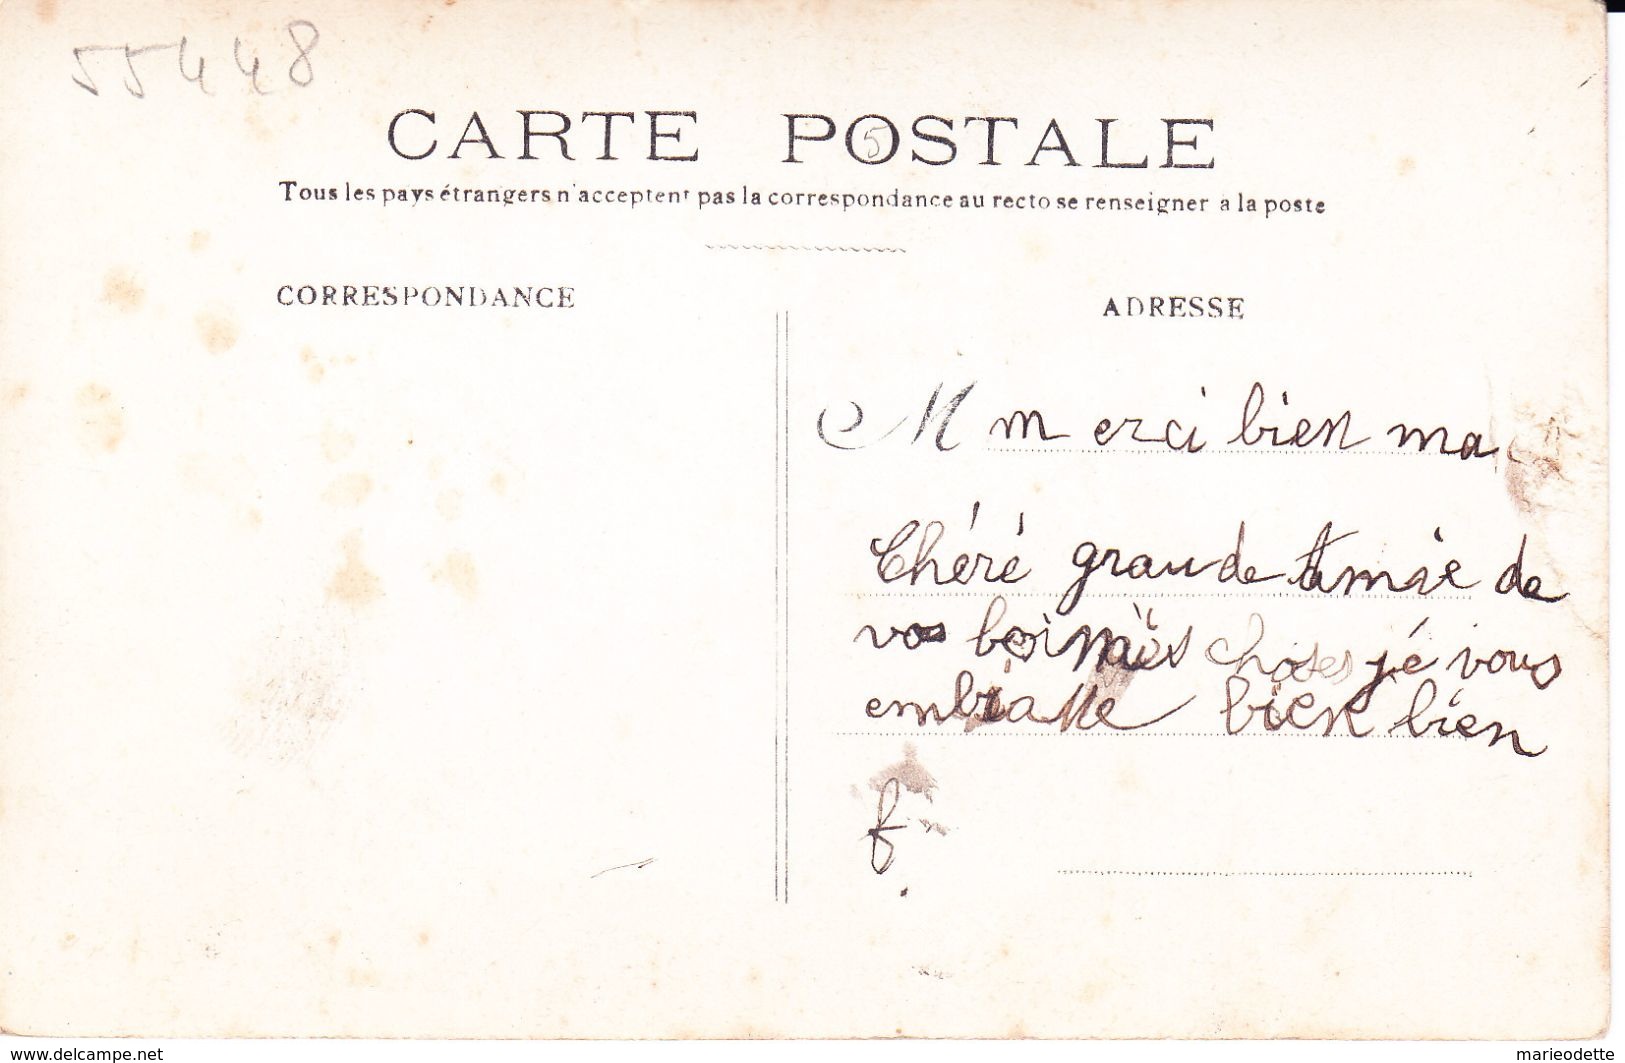 55448
CARTE POSTALE
5
Tous les pays étrangers n'acceptent pas la correspondance au recto se renseigner a la poste
CORRESPONDANCE
ADRESSE
M m erci bien ma
Chéré grande de
vos choses jé vous
embrasse bien bien
f.
www.delcampe.net
marieodette